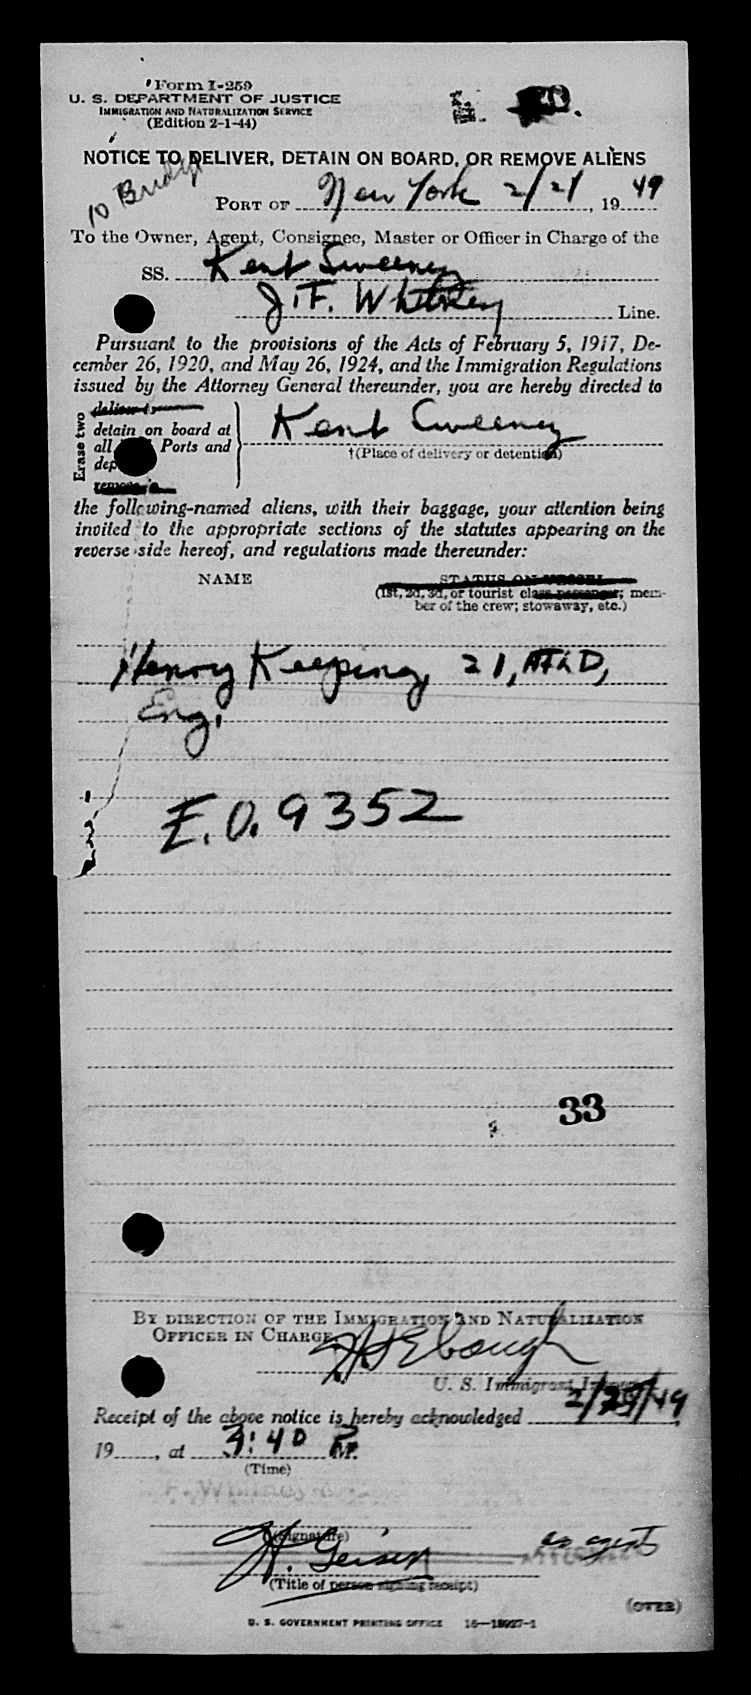 Form I-259
U. S. DEPARTMENT OF JUSTICE
IMMIGRATION AND NATURALIZATION SERVICE
(Edition 2-1-44)
NOTICE TO DELIVER, DETAIN ON BOARD, OR REMOVE ALIENS
10 Bridge
PORT OF New York 2/21, 1949
To the Owner, Agent, Consignee, Master or Officer in Charge of the
SS. Kent Sweeney
J. F. Whitney Line.
Pursuant to the provisions of the Acts of February 5, 1917, De-
cember 26, 1920, and May 26, 1924, and the Immigration Regulations
issued by the Attorney General thereunder, you are hereby directed to
Erase two
deliver to
detain on board at
all Ports and
dep
remove to
Kent Sweeney
†(Place of delivery or detention)
the following-named aliens, with their baggage, your attention being
invited to the appropriate sections of the statutes appearing on the
reverse side hereof, and regulations made thereunder:
NAME STATUS ON VESSEL
(1st, 2d, 3d, or tourist class passenger; mem-
ber of the crew; stowaway, etc.)
Henry Keeping, 21,
Eng.
E.O. 9352
33
BY DIRECTION OF THE IMMIGRATION AND NATURALIZATION
OFFICER IN CHARGE,
U. S. Immigrant
Receipt of the above notice is hereby acknowledged
19, at 3:40 P.M.
(Time)
(Signature)
H. Geisen as agents
(Title of person signing receipt)
(OVER)
U. S. GOVERNMENT PRINTING OFFICE 16—18927-1